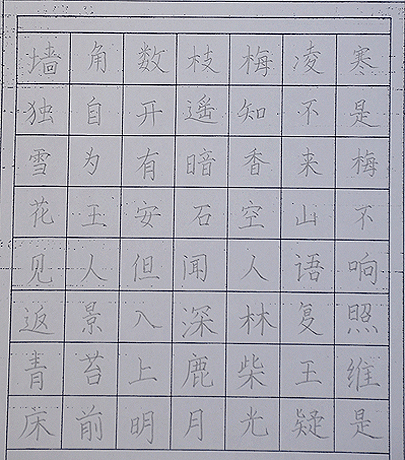 墙角数枝梅凌寒
独自开遥知不是
雪为有暗香来梅
花王安石空山不
见人但闻人语响
返景入深林复照
青苔上鹿柴王维
床前明月光疑是